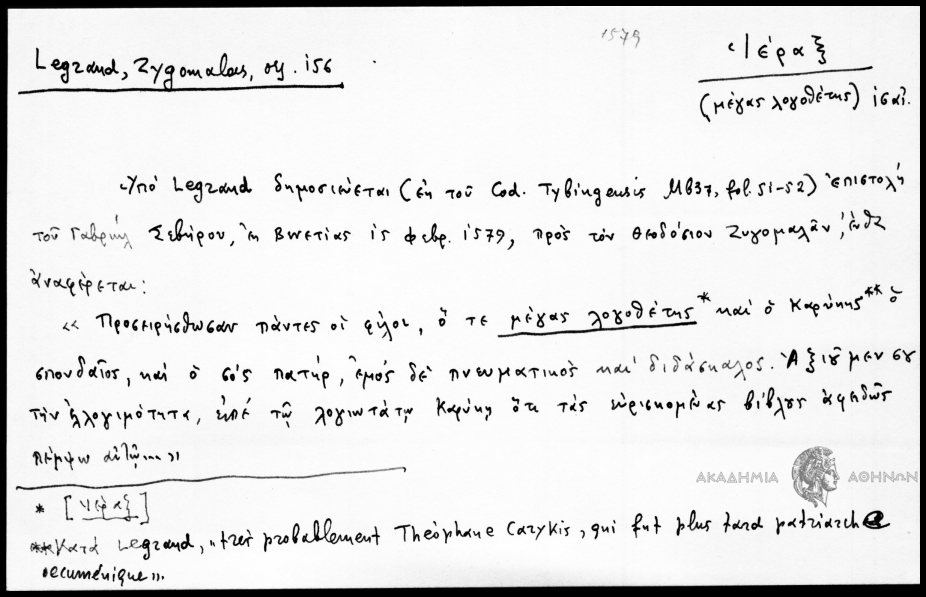 1579
Ἱέραξ
Legrand, Zygomalas, σελ. 156
(μέγας λογοθέτης) ἰσαῖ.
Ὑπό Legrand δημοσιεύεται (ἐκ τοῦ Cod. Tybingensis Mb37, fol. 51-52) ἐπιστολή
τοῦ Γαβριήλ Σεβήρου, ἐκ Βενετίας 15 φεβρ. 1579, πρὸς τὸν Θεοδόσιον Ζυγομαλᾶν, ἔνθα
ἀναφέρεται:
« Προσειρήσθωσαν πάντες οἱ φίλοι, ὅ τε μέγας λογοθέτης* καὶ ὁ Καρύκης** ὁ
σπουδαῖος, καὶ ὁ σός πατήρ, ἐμός δὲ πνευματικὸς καὶ διδάσκαλος. Ἀξιοῦμέν σου
τὴν ἐλλογιμότητα, εἰπέ τῷ λογιωτάτῳ Καρύκῃ ὅτι τάς εὑρισκομένας βίβλους ἀφειδῶς
πέμψω αὐτῷ... »
ΑΚΑΔΗΜΙΑ ΑΘΗΝΩΝ
* [Ἱέραξ]
** Κατά Legrand, «très probablement Théophane Carykis, qui fut plus tard patriarche
oecuménique».